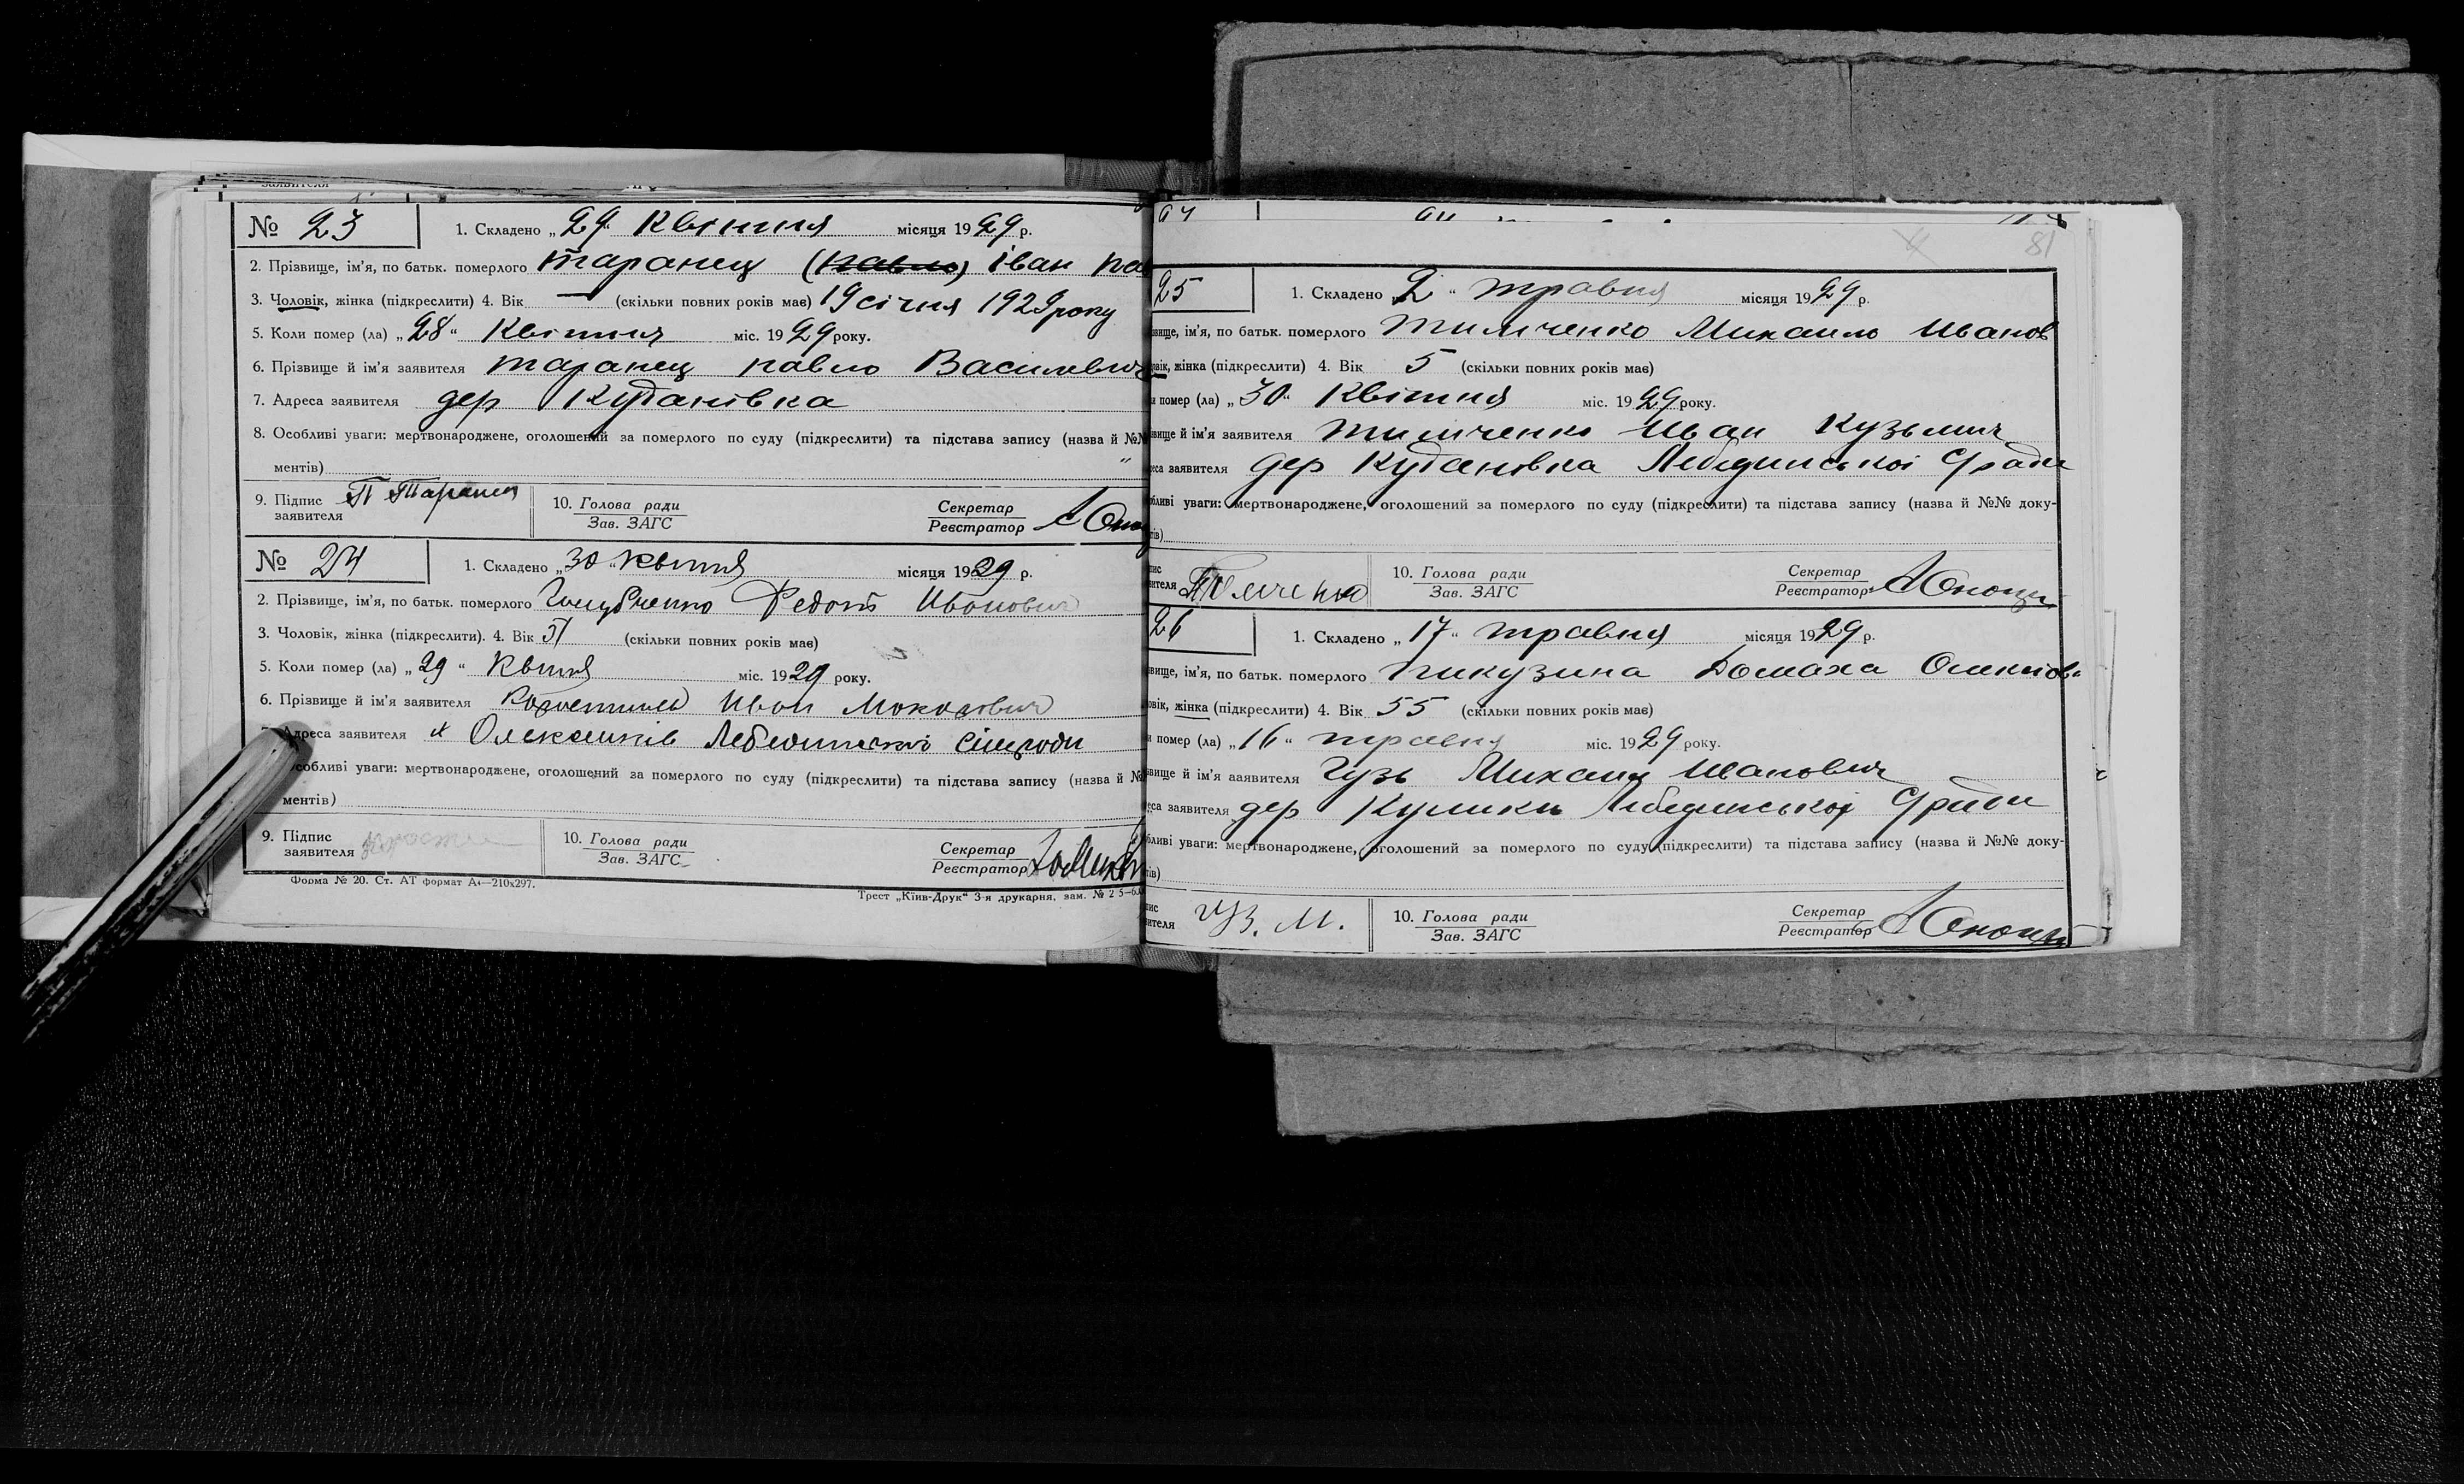 № 23
1. Складено „29" Квітня місяця 1929 р.
2. Прізвище, ім'я, по батьк. померлого Таранец (павло) іван па
3. Чоловік, жінка (підкреслити) 4. Вік — (скільки повних років має) 19 січня 1929 року
5. Коли помер (ла) „28" Квітня міс. 1929 року.
6. Прізвище й ім'я заявителя Таранец павло Василевич
7. Адреса заявителя дер Кудановка
8. Особливі уваги: мертвонароджене, оголошений за померлого по суду (підкреслити) та підстава запису (назва й №№
ментів)
9. Підпис заявителя П Таранец
10. Голова ради
Зав. ЗАГС
Секретар
Реєстратор
№ 24
1. Складено „30" Квітня місяця 1929 р.
2. Прізвище, ім'я, по батьк. померлого Федот Иванович
3. Чоловік, жінка (підкреслити). 4. Вік (скільки повних років має)
5. Коли помер (ла) „29" міс. 1929 року.
6. Прізвище й ім'я заявителя Иван
Адреса заявителя х
собливі уваги: мертвонароджене, оголошений за померлого по суду (підкреслити) та підстава запису (назва й №
ментів)
9. Підпис заявителя
10. Голова ради
Зав. ЗАГС
Секретар
Реєстратор
Форма № 20. Ст. АТ формат А4—210х297.
Трест „Київ-Друк" 3-я друкарня, зам. № 25—6
81
25
1. Складено „2" травня місяця 1929 р.
вище, ім'я, по батьк. померлого Тимченко Михаило Иванов
овік, жінка (підкреслити) 4. Вік 5 (скільки повних років має)
и помер (ла) „30" Квітня міс. 1929 року.
вище й ім'я заявителя Тимченко Иван Кузьмич
еса заявителя дер Кудановка Лебединськоі С/ради
бливі уваги: мертвонароджене, оголошений за померлого по суду (підкреслити) та підстава запису (назва й №№ доку-
тів)
пис
вителя
10. Голова ради
Зав. ЗАГС
Секретар
Реєстратор
26
1. Складено „17" травня місяця 1929 р.
вище, ім'я, по батьк. померлого Пикузина Домаха
овік, жінка (підкреслити) 4. Вік 55 (скільки повних років має)
и помер (ла) „16" травня міс. 1929 року.
вище й ім'я заявителя Гузь Михаил Иванович
еса заявителя дер Кулики Лебединськоі С/ради
бливі уваги: мертвонароджене, оголошений за померлого по суду (підкреслити) та підстава запису (назва й №№ доку-
тів)
пис
вителя Гуз. М.
10. Голова ради
Зав. ЗАГС
Секретар
Реєстратор